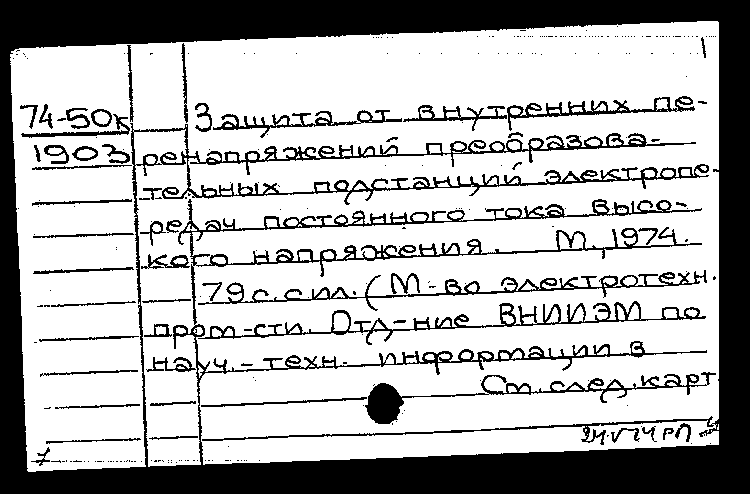 74-50к Защита от внутренних пе-
1903 ренапряжений преобразова-
тельных подстанций электропе-
редач постоянного тока высо-
кого напряжения. М., 1974.
79 с. с ил. (М-во электротехн.
пром-сти. Отд-ние ВНИИЭМ по
науч.-техн. информации в
См. след. карт.
24 V 74 РП